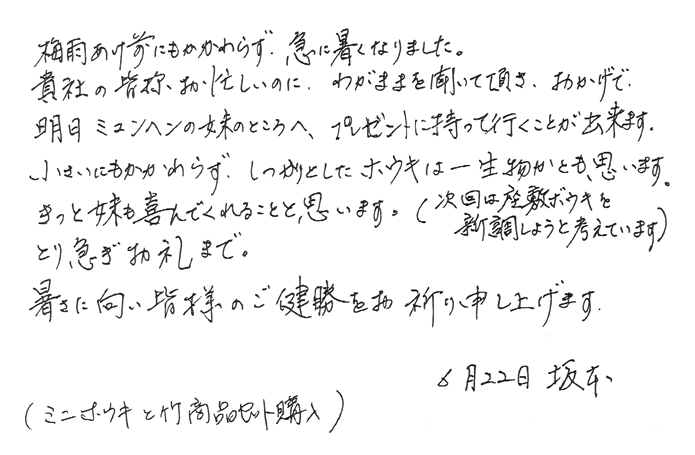 梅雨あけ前にもかかわらず、急に暑くなりました。
貴社の皆様、お忙しいのに、わがままを聞いて頂き、おかげで、
明日ミュンヘンの妹のところへ、プレゼントに持って行くことが出来ます。
小さいにもかかわらず、しっかりとしたホウキは一生物かとも、思います。
きっと妹も喜んでくれることと、思います。(次回は座敷ボウキを
新調しようと考えています)
とり急ぎお礼まで。
暑さに向い皆様のご健勝をお祈り申し上げます。
6月22日 坂本
(ミニホウキと竹商品セット購入)